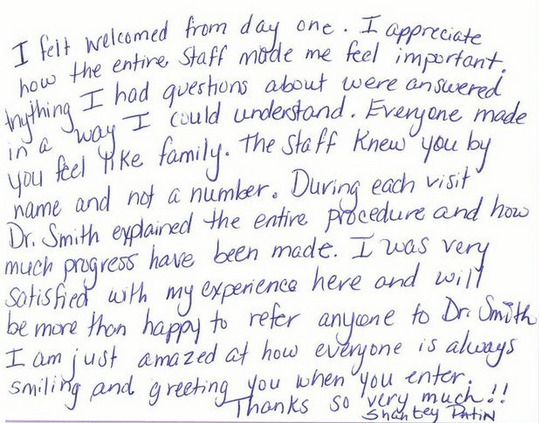 I felt welcomed from day one. I appreciate
how the entire staff made me feel important.
Anything I had questions about were answered
in a way I could understand. Everyone made
you feel like family. The staff knew you by
name and not a number. During each visit
Dr. Smith explained the entire procedure and how
much progress have been made. I was very
satisfied with my experience here and will
be more than happy to refer anyone to Dr. Smith
I am just amazed at how everyone is always
smiling and greeting you when you enter.
Thanks so very much!!